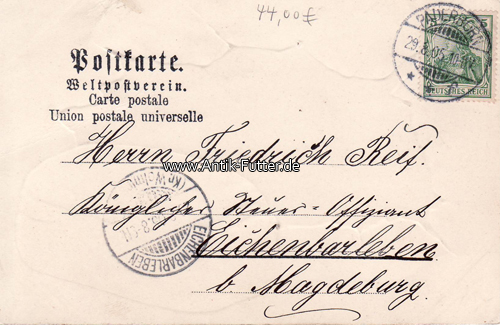 44,00€
Postkarte.
Weltpostverein.
Carte postale
Union postale universelle
5
DEUTSCHES REICH
29.8.05.
Herrn Friedrich Reif.
www.Antik-Futter.de
Königlicher Steuer-Offiziant
EICHENBARLEBEN
Eichenbarleben
b Magdeburg.